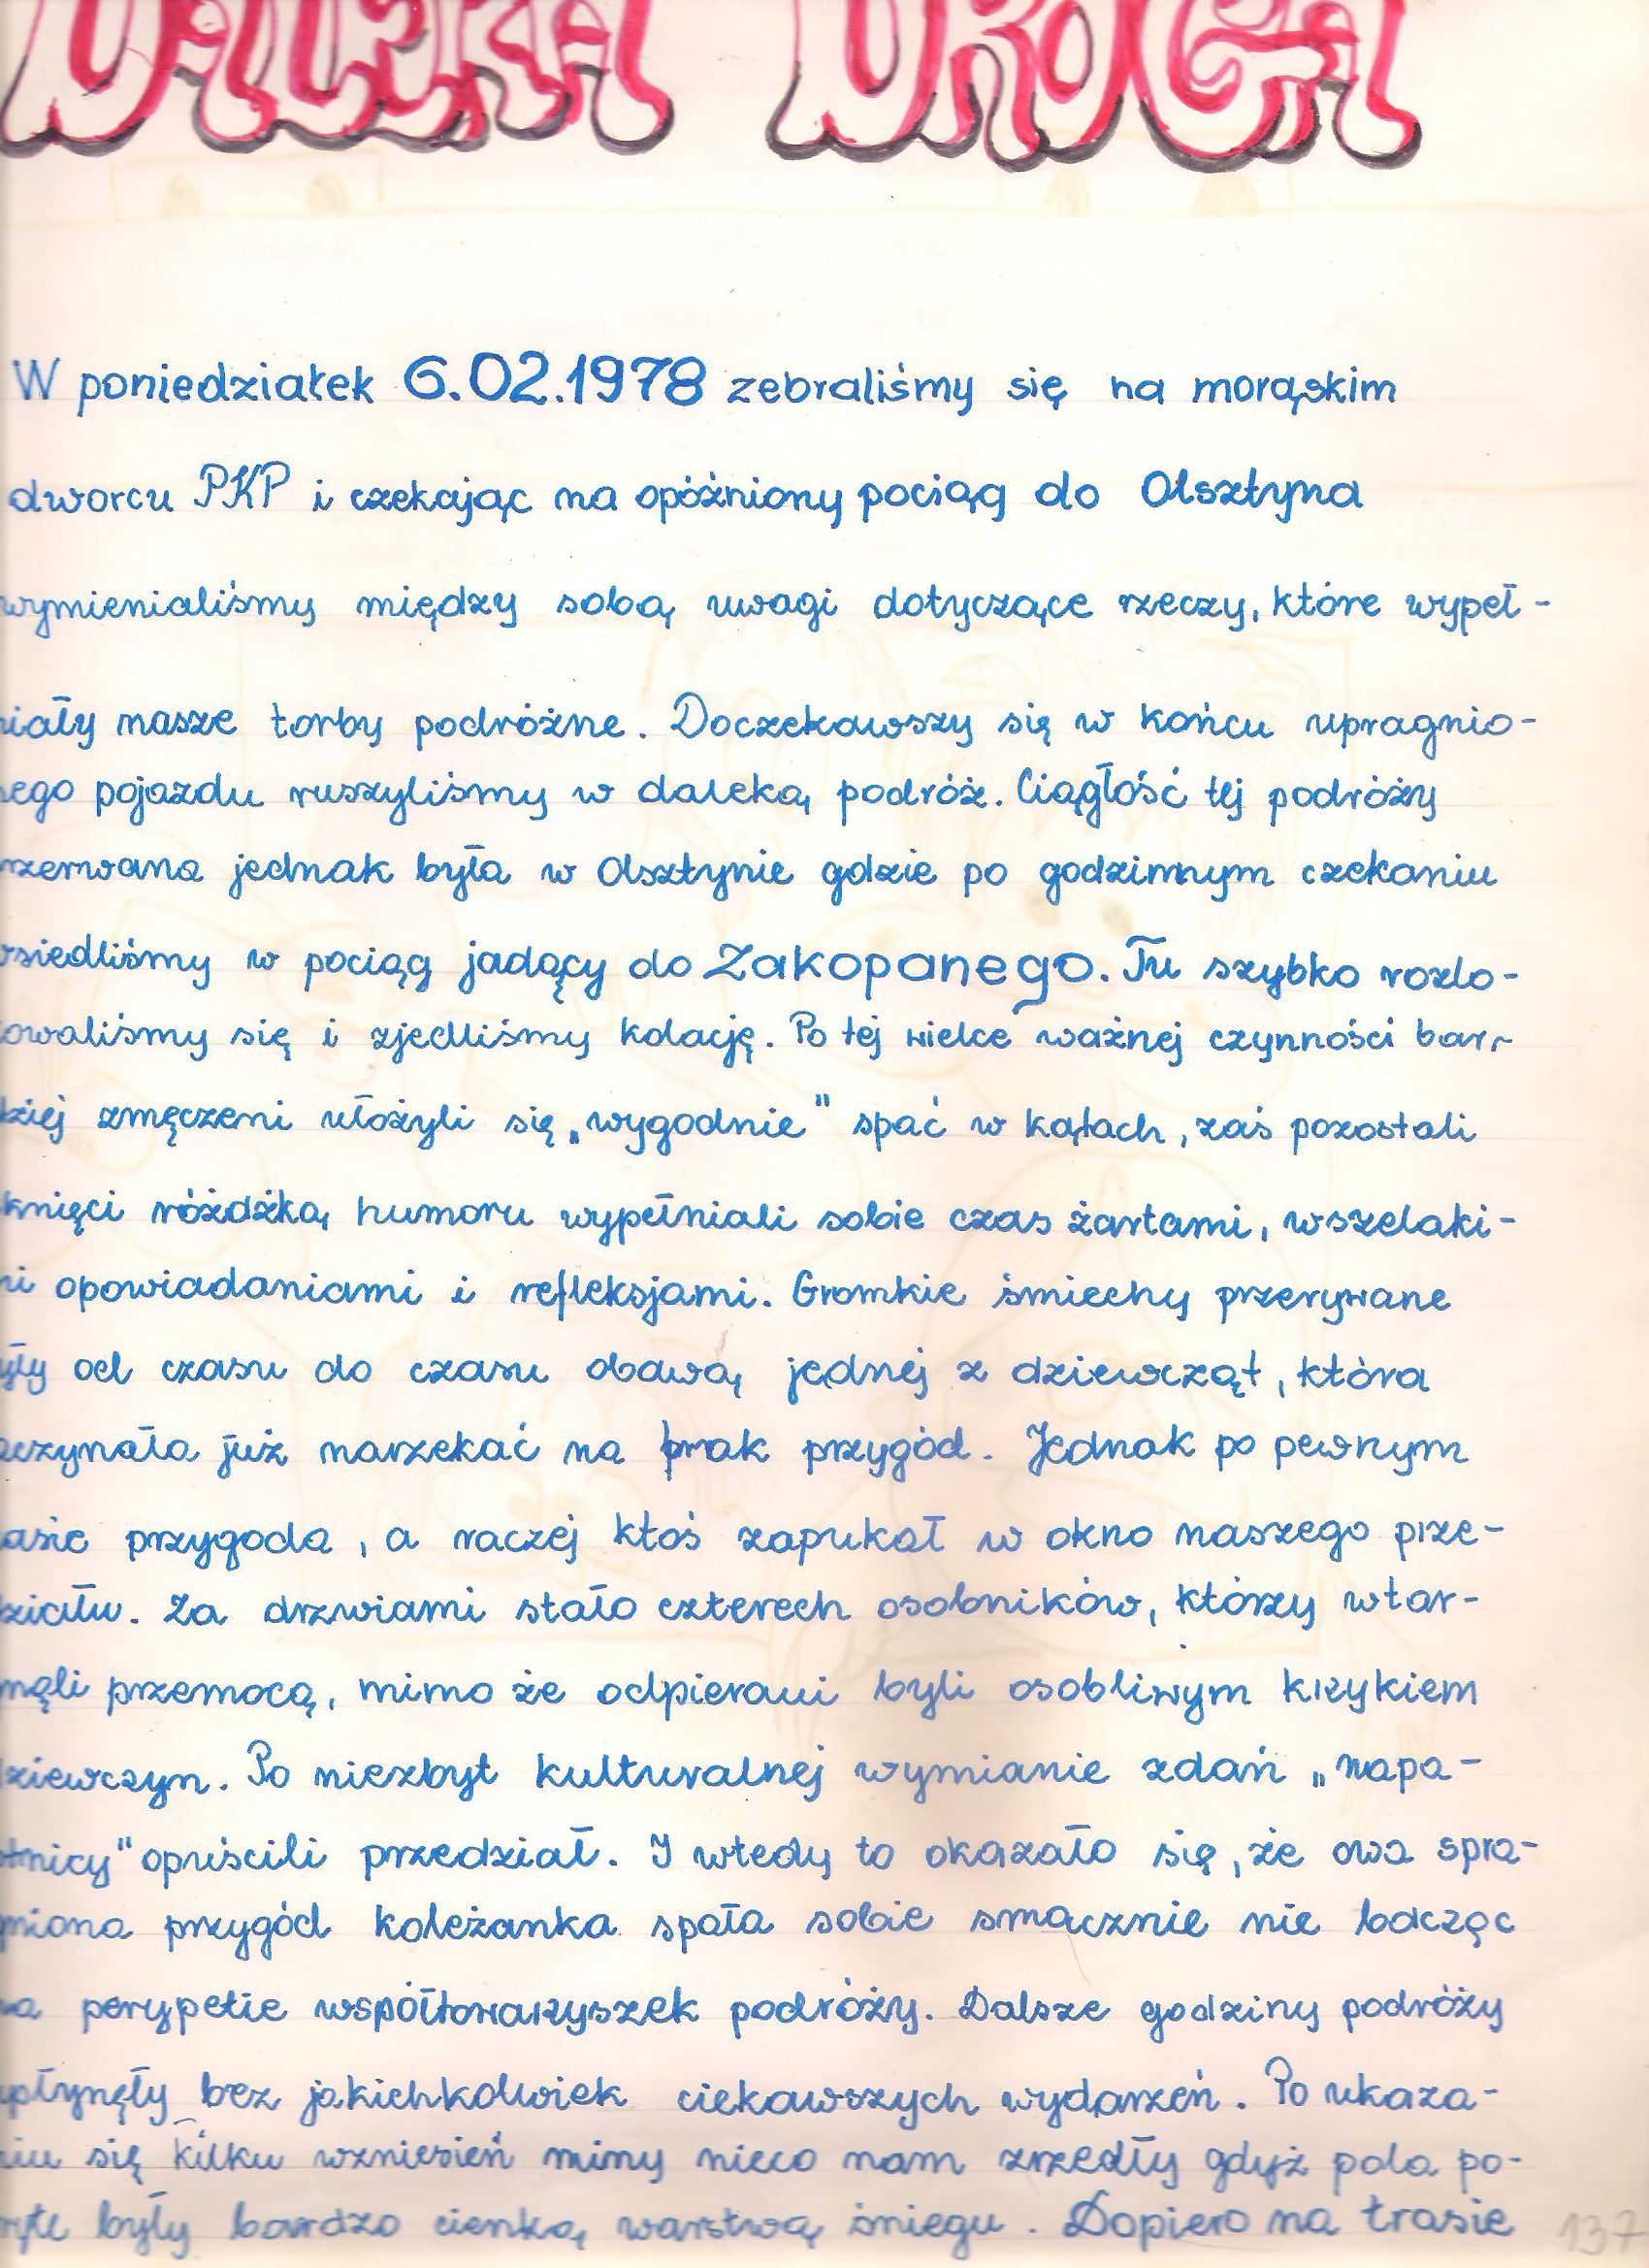 DALEKA DROGA
W poniedziałek 6.02.1978 zebraliśmy się na morąskim
dworcu PKP i czekając na opóźniony pociąg do Olsztyna
wymienialiśmy między sobą uwagi dotyczące rzeczy, które wypeł-
niały nasze torby podróżne. Doczekawszy się w końcu upragnio-
nego pojazdu ruszyliśmy w daleką podróż. Ciągłość tej podróży
rzerwana jednak była w Olsztynie gdzie po godzinnym czekaniu
wsiedliśmy w pociąg jadący do Zakopanego. Tu szybko rozlo-
kowaliśmy się i zjedliśmy kolację. Po tej wielce ważnej czynności bar-
dziej zmęczeni ułożyli się „wygodnie" spać w kątach, zaś pozostali
tknięci różdżką humoru wypełniali sobie czas żartami, wszelaki-
mi opowiadaniami i refleksjami. Gromkie śmiechy przerywane
były od czasu do czasu obawą jednej z dziewcząt, która
zaczynała już narzekać na brak przygód. Jednak po pewnym
czasie przygoda, a raczej ktoś zapukał w okno naszego prze-
działu. Za drzwiami stało czterech osobników, którzy wtar-
gnęli przemocą, mimo że odpierani byli osobliwym krzykiem
dziewczyn. Po niezbyt kulturalnej wymianie zdań „napa-
stnicy" opuścili przedział. I wtedy to okazało się, że owa spra-
gniona przygód koleżanka spała sobie smacznie nie bacząc
na perypetie współtowarzyszek podróży. Dalsze godziny podróży
upłynęły bez jakichkolwiek ciekawszych wydarzeń. Po ukaza-
niu się kilku wzniesień miny nieco nam zrzedły gdyż pola po-
kryte były bardzo cienką warstwą śniegu. Dopiero na trasie
137